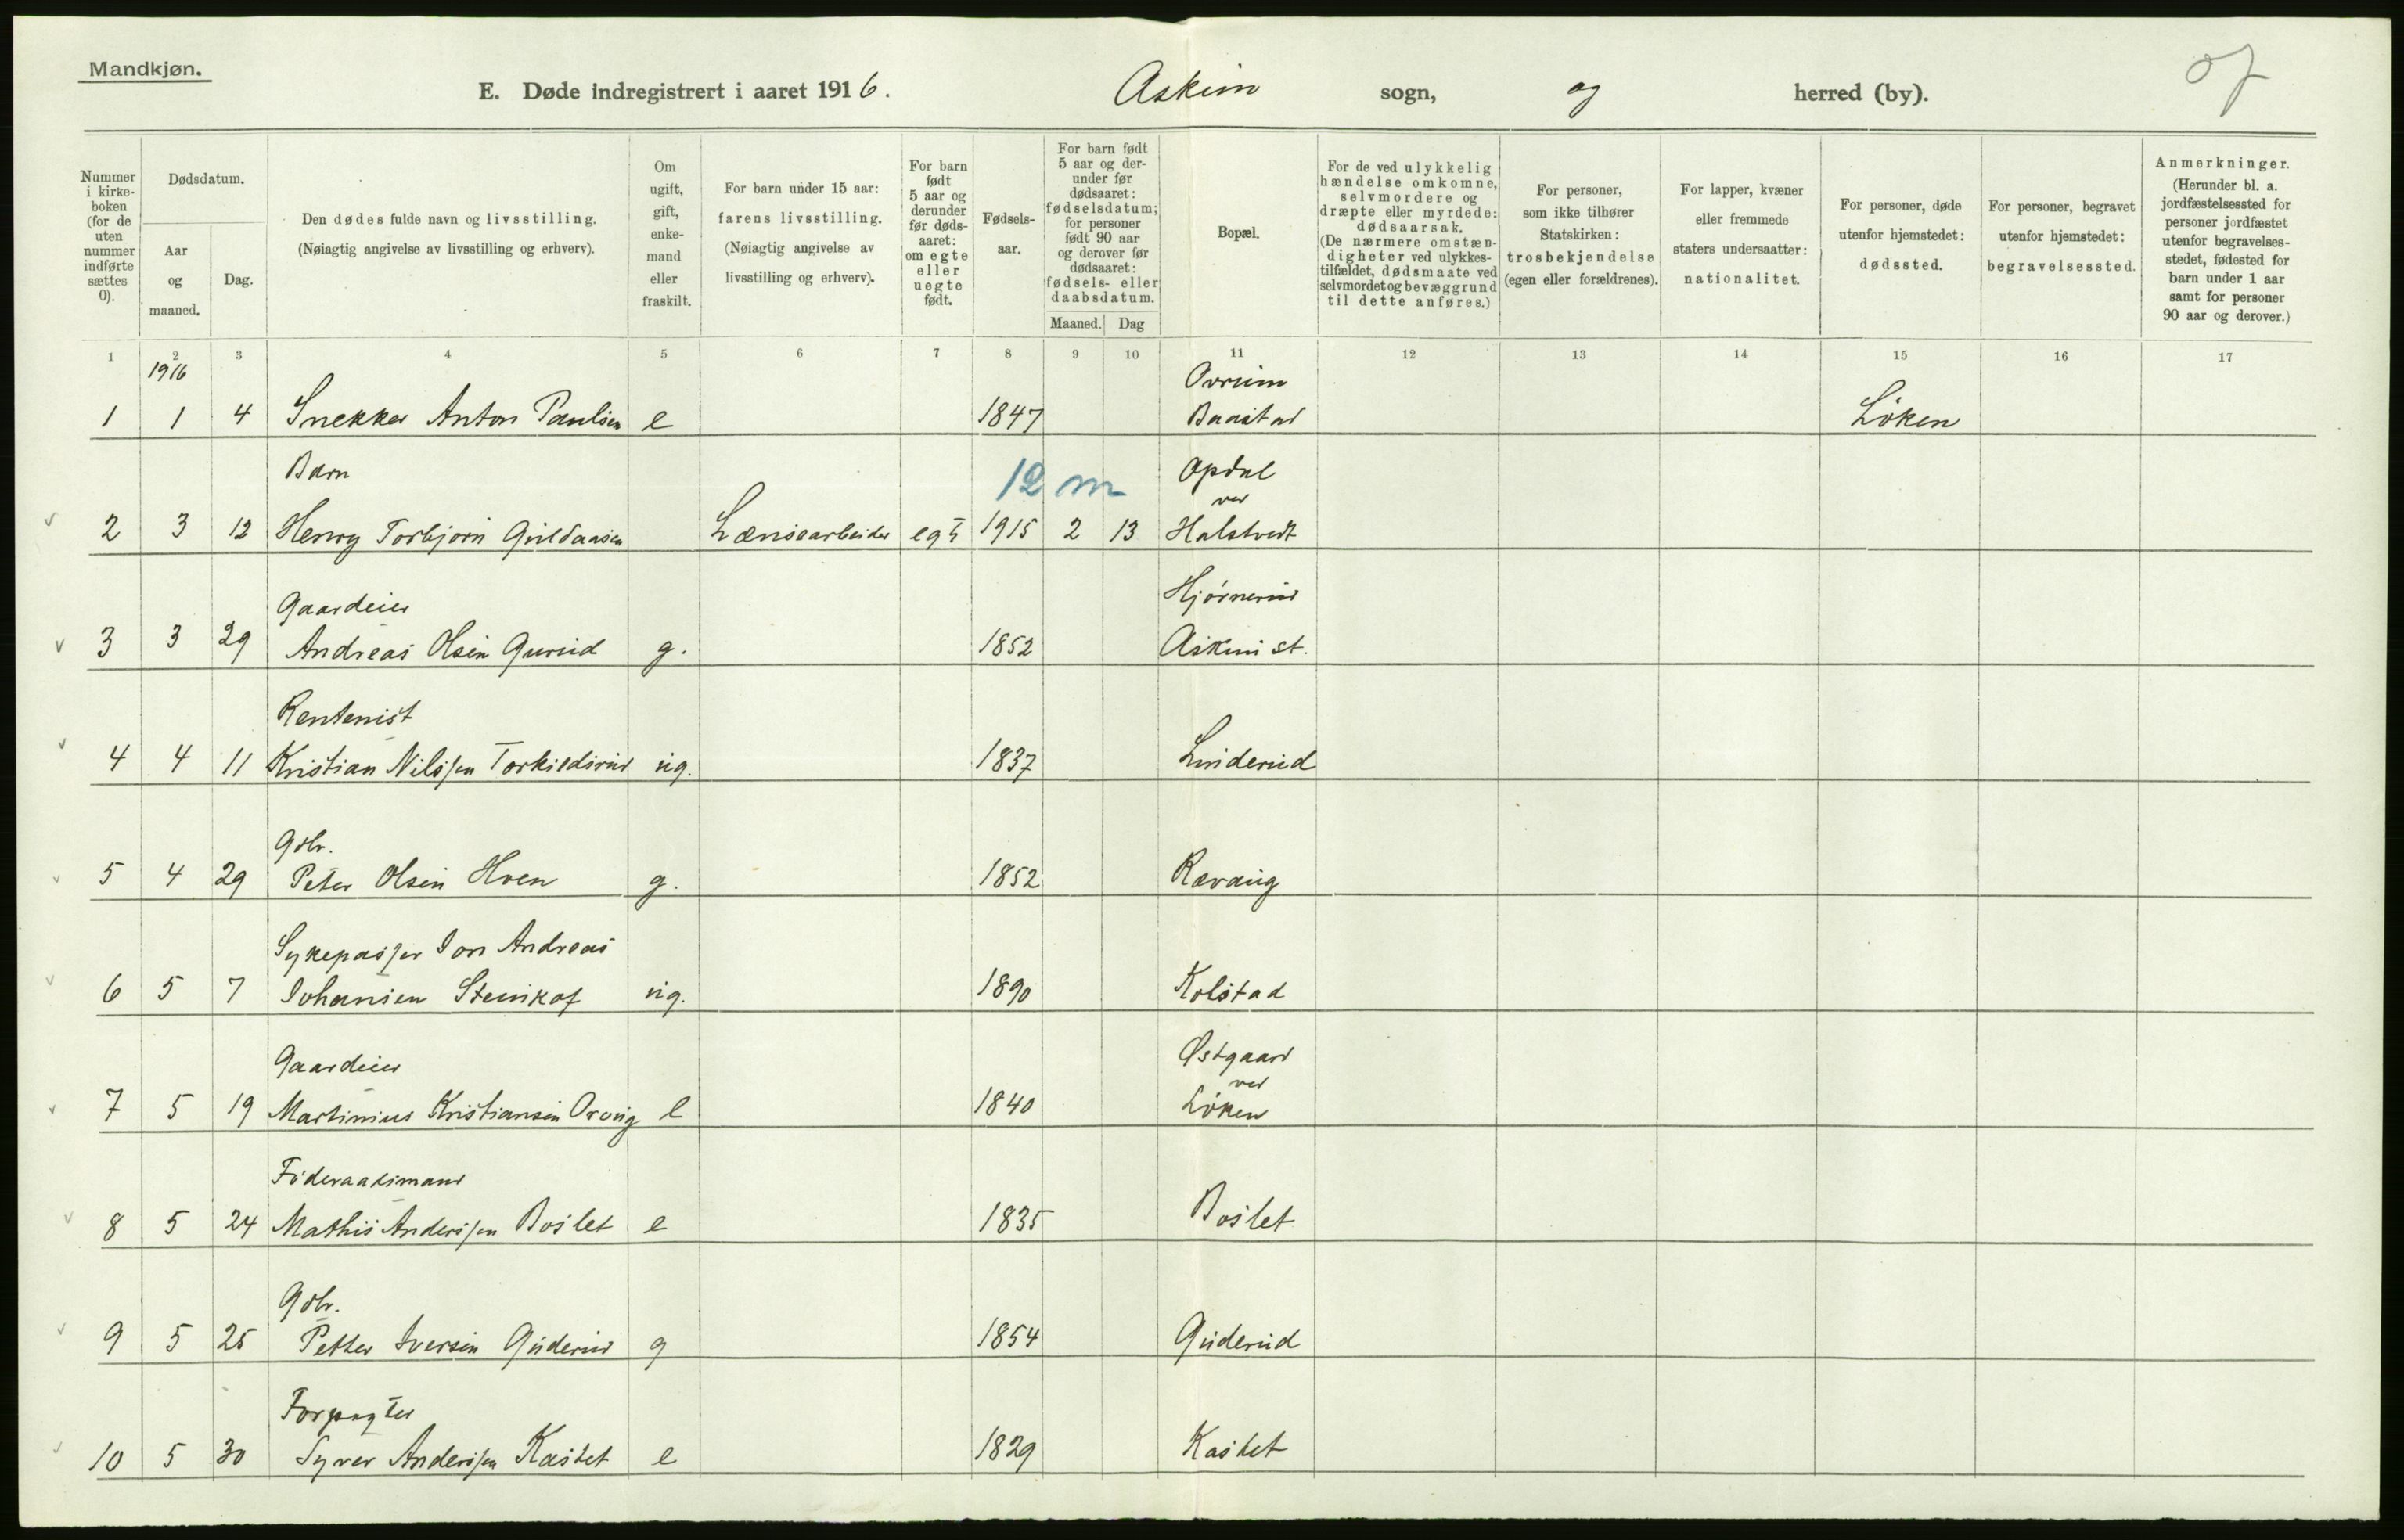 Mandkjøn.
E. Døde indregistrert i aaret 1916. Askim sogn, og herred (by).
Nummer i kirke-boken (for de uten nummer indførte sættes 0).
Dødsdatum.
Aar og maaned.
Dag.
Den dødes fulde navn og livsstilling.
(Nøiagtig angivelse av livsstilling og erhverv).
Om ugift, gift, enke-mand eller fraskilt.
For barn under 15 aar: farens livsstilling. (Nøiagtig angivelse av livsstilling og erhverv).
For barn født 5 aar og derunder før døds-aaret: om egte eller uegte født.
Fødsels-aar.
For barn født 5 aar og der-under før dødsaaret: fødselsdatum; for personer født 90 aar og derover før dødsaaret: fødsels- eller daabsdatum.
Maaned. Dag
Bopæl.
For de ved ulykkelig hændelse omkomne, selvmordere og dræpte eller myrdede: dødsaarsak. (De nærmere omstæn-digheter ved ulykkes-tilfældet, dødsmaate ved selvmordet og bevæggrund til dette anføres.)
For personer, som ikke tilhører Statskirken: trosbekjendelse (egen eller forældrenes).
For lapper, kvæner eller fremmede staters undersaatter: nationalitet.
For personer, døde utenfor hjemstedet: dødssted.
For personer, begravet utenfor hjemstedet: begravelsessted.
Anmerkninger. (Herunder bl. a. jordfæstelsessted for personer jordfæstet utenfor begravelses-stedet, fødested for barn under 1 aar samt for personer 90 aar og derover.)
1 2 3 4 5 6 7 8 9 10 11 12 13 14 15 16 17
1916
1 1 4 Snekker Anton Paulsen e 1847 Baastad Löken
Barn 12 m Opdal
ved
2 3 12 Henry Torbjørn Guldaasen Lænsearbeider egt 1915 2 13 Halstvedt
Gaardeier Hjörnerud
3 3 29 Andreas Olsen Gurud g. 1852 Askim st.
Rentenist
4 4 11 Kristian Nilssen Torkildsrud ug. 1837 Linderud
Gdbr.
5 4 29 Peter Olsen Hoen g. 1852 Rævaug
Sykepasser Jon Andreas
6 5 7 Johansen ug. 1890 Kolstad
Gaardeier Østgaard
ved
7 5 19 Martinius Kristiansen e 1840 Löken
Föderaadsmand
8 5 24 Mathis Anderssen Boslet e 1835 Boslet
Gdbr.
9 5 25 Petter Iversen Guderud g 1854 Guderud
Forpagter
10 5 30 Syver Anderssen Kastet e 1829 Kastet